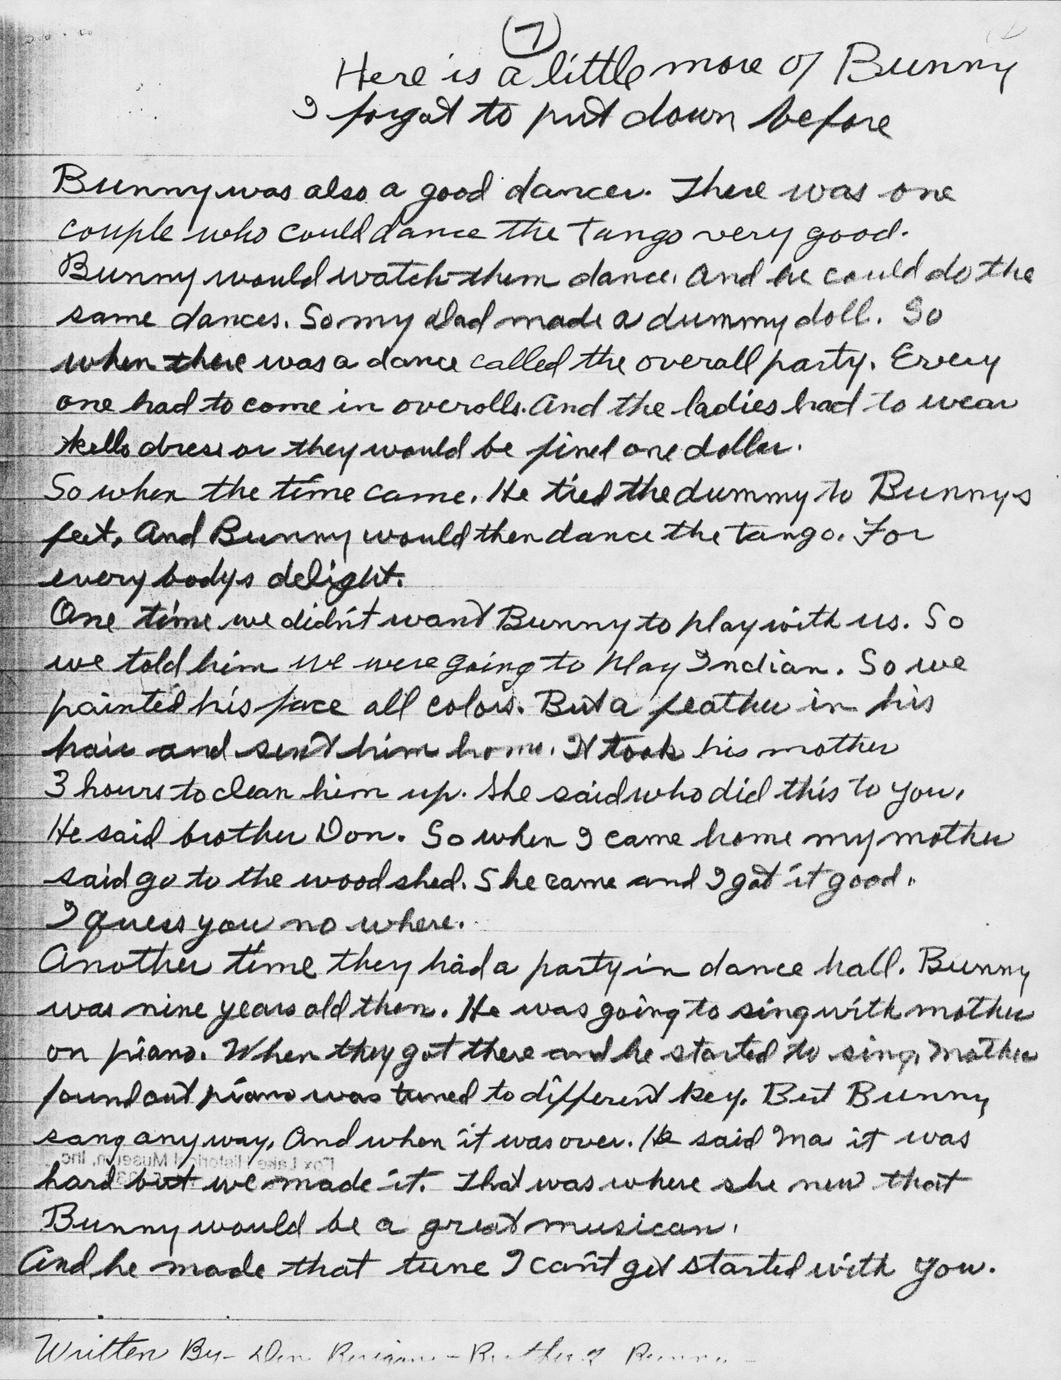 (7)
Here is a little more of Bunny
I forgot to put down before
Bunny was also a good dancer. There was one
couple who could dance the Tango very good.
Bunny would watch them dance. And he could do the
same dances. So my Dad made a dummy doll. So
when there was a dance called the overall party. Every
one had to come in overolls. And the ladies had to wear
dress or they would be fined one dollar.
So when the time came. He tied the dummy to Bunnys
feet. And Bunny would then dance the tango. For
every bodys delight.
One time we didn't want Bunny to play with us. So
we told him we were going to play Indian. So we
painted his face all colors. But a feather in his
hair and sent him home. It took his mother
3 hours to clean him up. She said who did this to you.
He said brother Don. So when I came home my mother
said go to the wood shed. She came and I got it good.
I guess you no where.
Another time they had a party in dance hall. Bunny
was nine years old then. He was going to sing with mother
on piano. When they got there and he started to sing, Mother
found out piano was tuned to different key. But Bunny
sang any way. And when it was over. He said Ma it was
Fox Lake Historical Museum, Inc.
hard but we made it. That was where she new that
Bunny would be a great musican.
And he made that tune I can't get started with you.
Written By- Don Berigan - Brother of Bunny